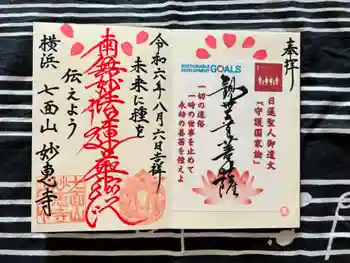 奉拝
日蓮聖人御遺文
『守護国家論』
SUSTAINABLE
DEVELOPMENT GOALS
観世音菩薩
一切の道俗
一時の世事を止めて
永劫の善苗を種えよ
令和六年八月六日吉祥
未来に種を
伝えよう
南無妙法蓮華経
横浜 七面山 妙恵寺